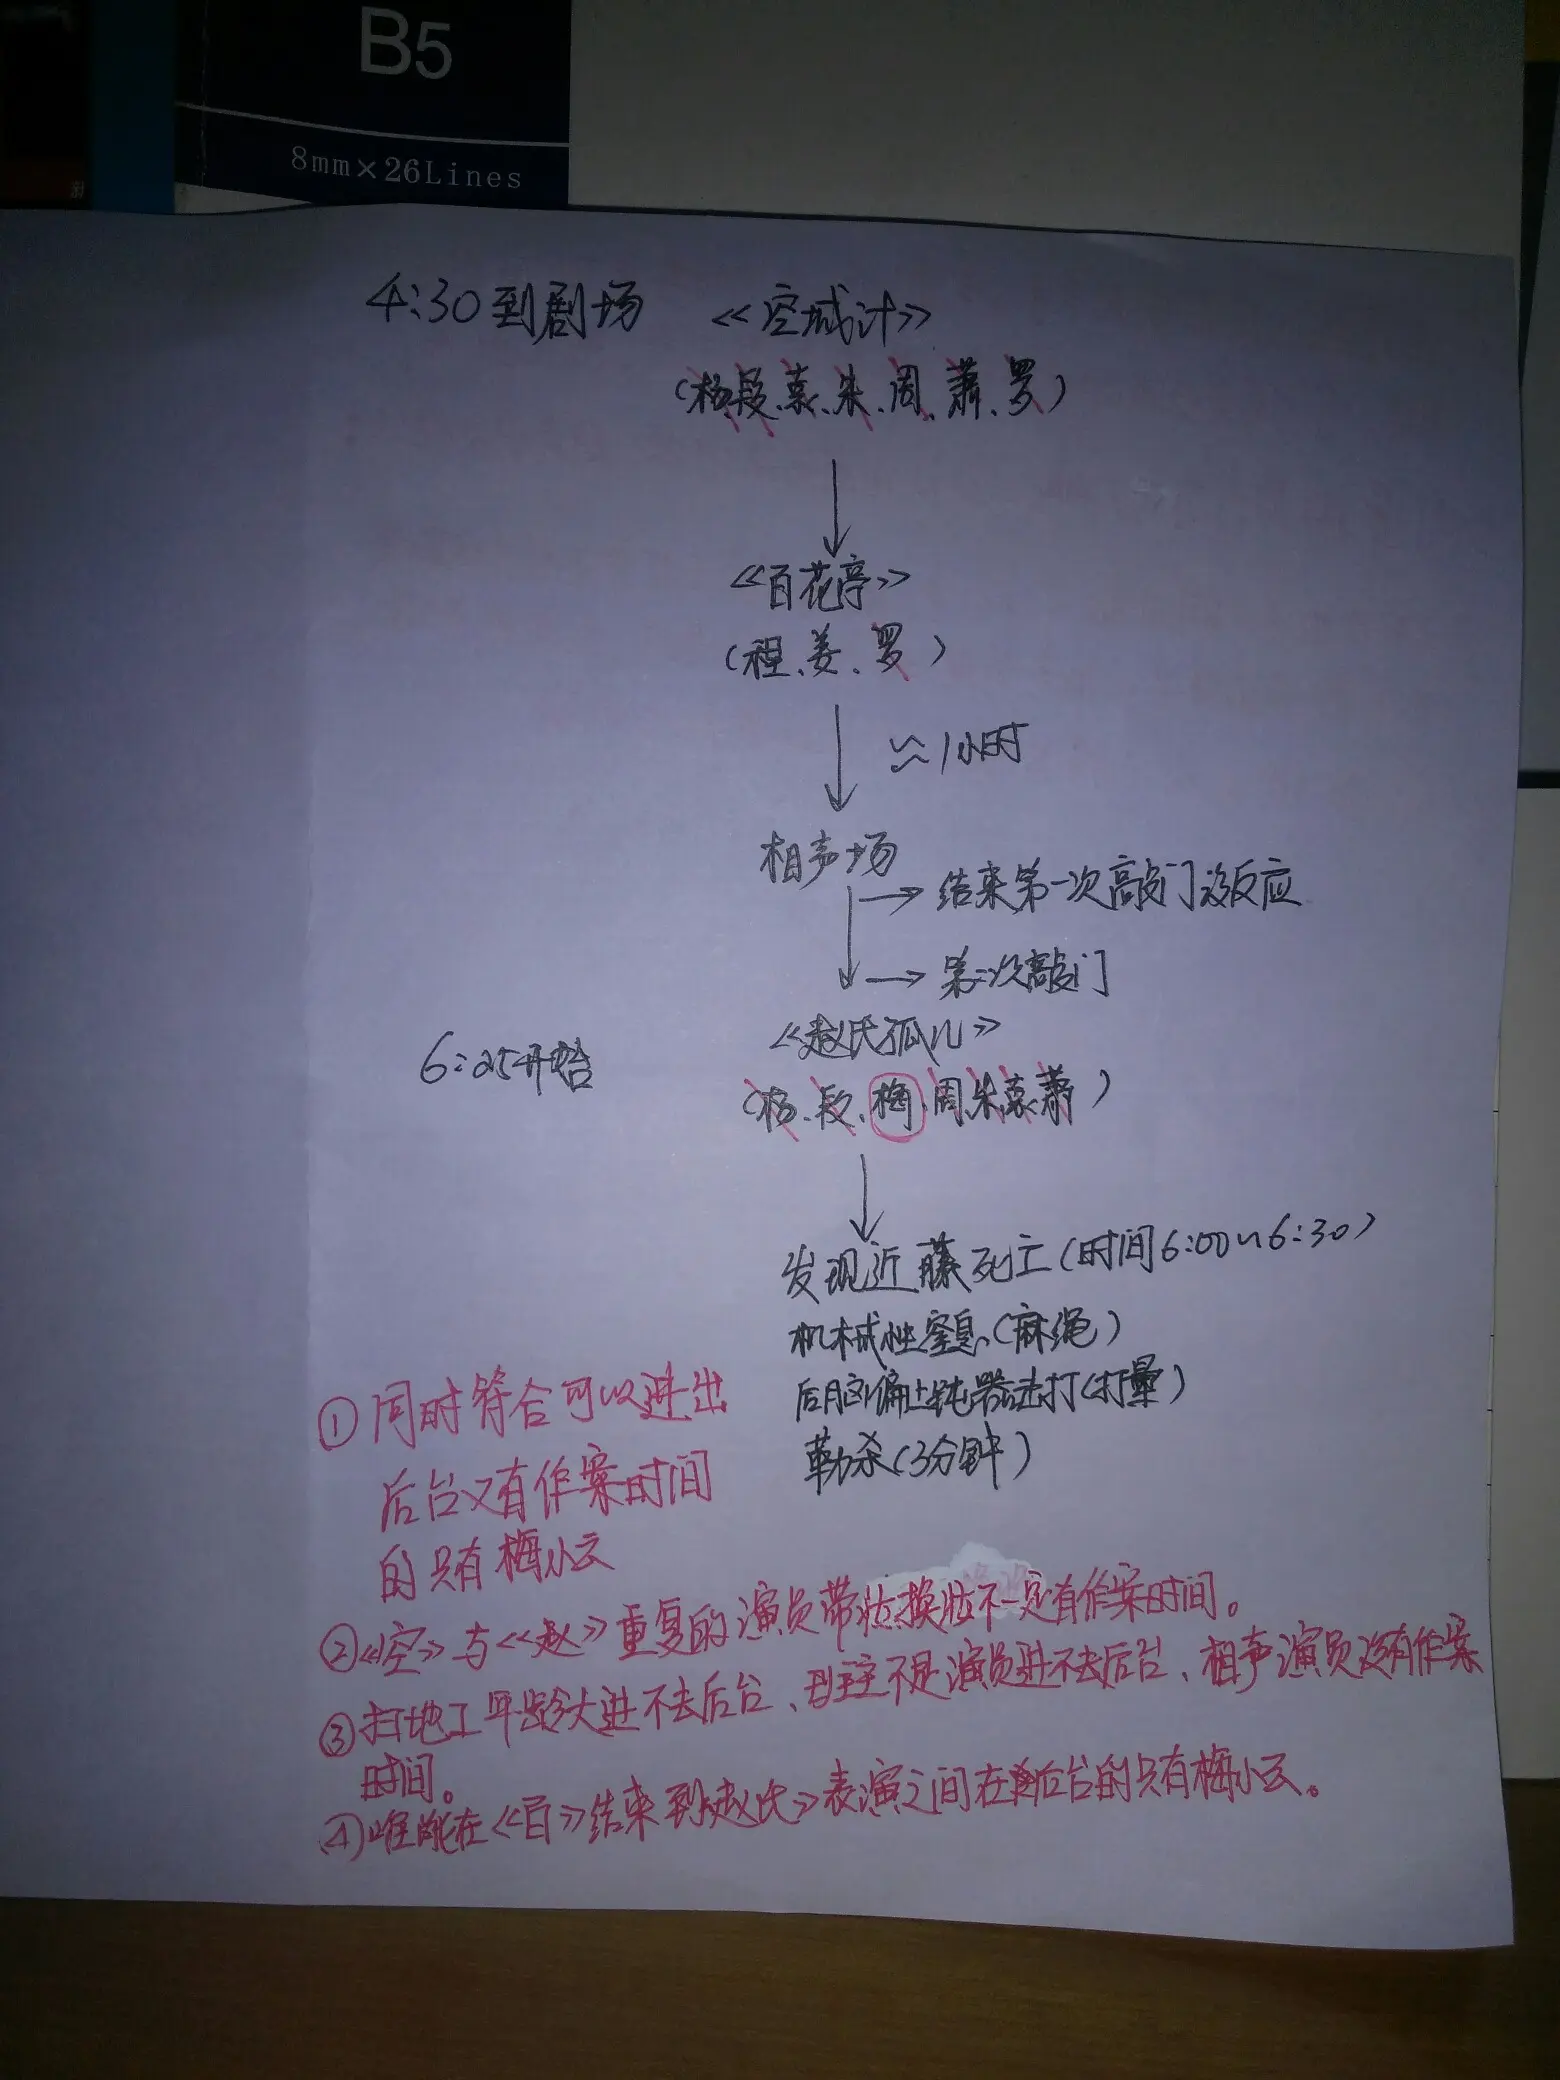 B5
8mm×26Lines
4:30到剧场 《空城计》
(杨、段、袁、朱、周、萧、罗)
《百花亭》
(程、姜、罗)
≈1小时
相声场
→结束第一次敲门没反应
→第二次敲门
《赵氏孤儿》
6:25开始
(杨、段、梅、周、朱、袁、萧)
发现近藤死亡(时间6:00~6:30)
机械性窒息(麻绳)
后脑偏上钝器击打(打晕)
勒杀(3分钟)
①同时符合可以进出
后台又有作案时间
的只有梅小云
②《空》与《赵》重复的演员带妆换妆不一定有作案时间。
③扫地工年龄大进不去后台、班主不是演员进不去后台、相声演员没有作案
时间。
④唯能在《百》结束到《赵氏》表演之间在后台的只有梅小云。